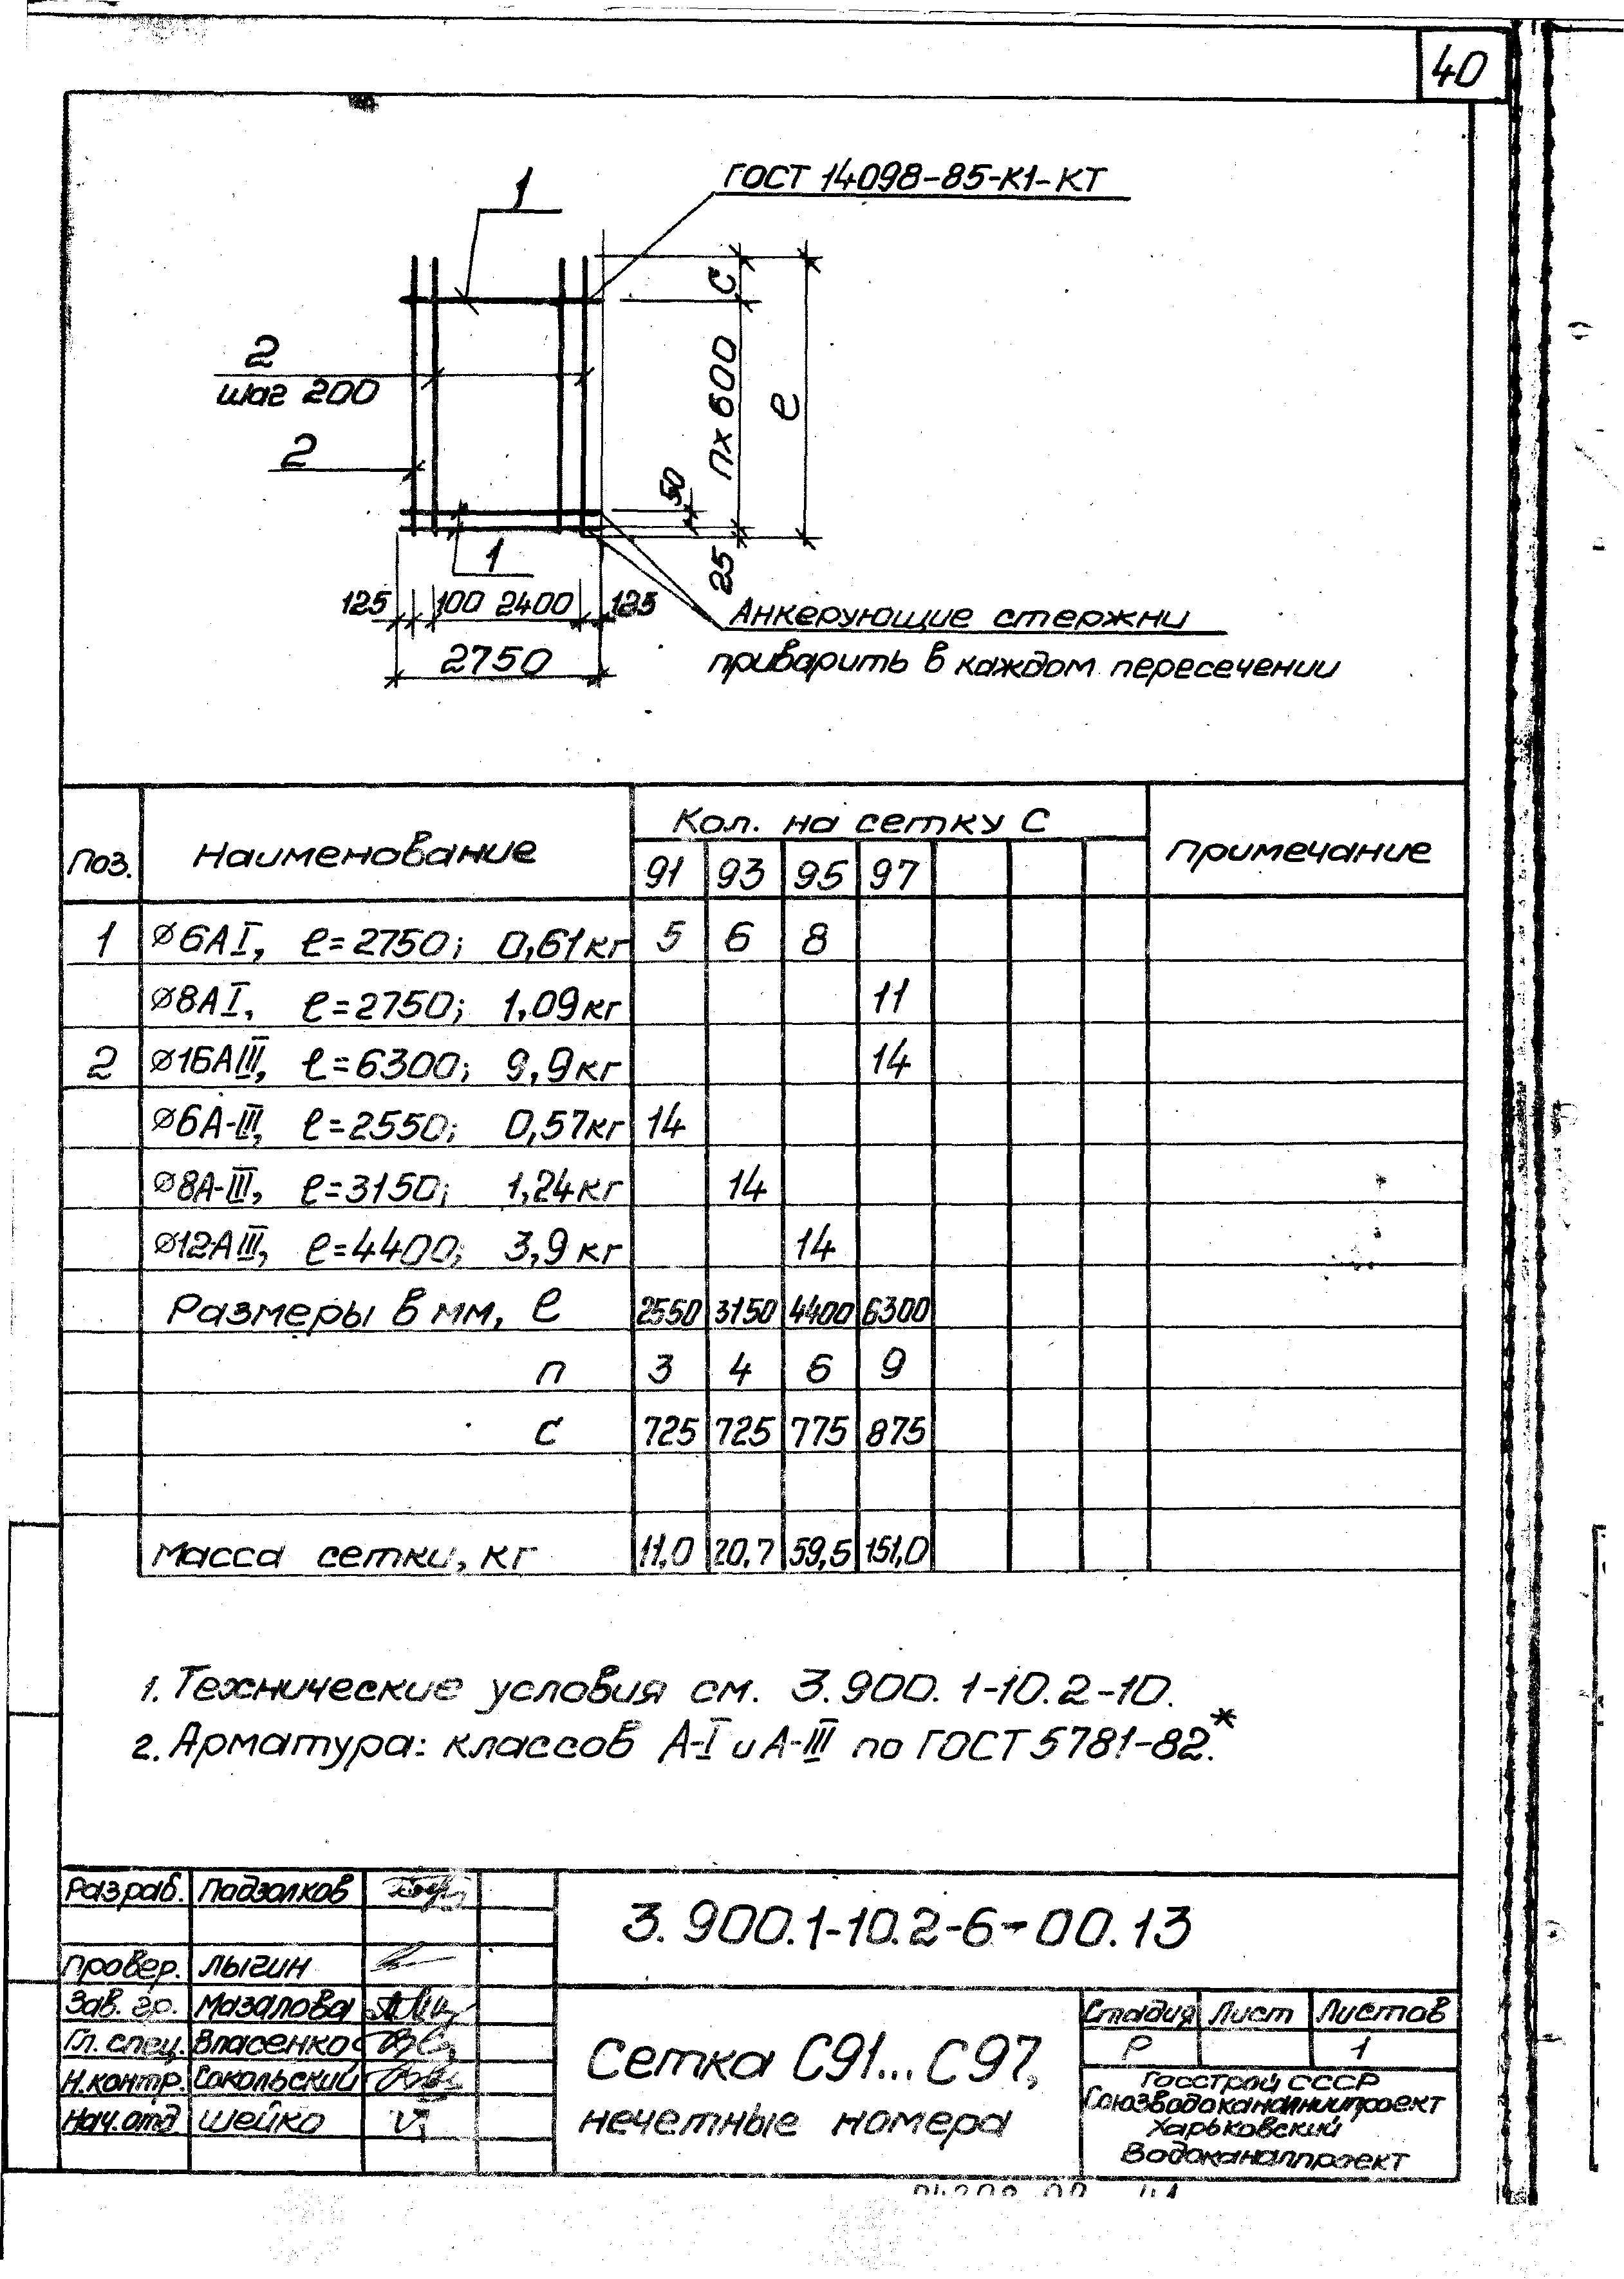 40
ГОСТ 14098-85-К1-КТ
1
2
шаг 200
2
1
с
пх600
ℓ
50
25
125 100 2400 125
2750
Анкерующие стержни
приварить в каждом пересечении
Поз. Наименование Кол. на сетку С Примечание
91 93 95 97
1 ∅6АI, ℓ=2750; 0,61кг 5 6 8
∅8АI, ℓ=2750; 1,09кг 11
2 ∅16АIII, ℓ=6300; 9,9кг 14
∅6А-III, ℓ=2550; 0,57кг 14
∅8А-III, ℓ=3150; 1,24кг 14
∅12АIII, ℓ=4400; 3,9кг 14
Размеры в мм, ℓ 2550 3150 4400 6300
п 3 4 6 9
с 725 725 775 875
Масса сетки, кг 11,0 20,7 59,5 151,0
1. Технические условия см. 3.900.1-10.2-10.
2. Арматура: классов А-I и А-III по ГОСТ 5781-82.*
Разраб. Падзолков
Провер. Лыгин
Зав. гр. Мазалова
Гл. спец. Власенко
Н.контр. Сокольский
Нач.отд Шейко
3.900.1-10.2-6-00.13
Сетка С91...С97,
нечетные номера
Стадия Лист Листов
Р 1
Госстрой СССР
Союзводоканалниипроект
Харьковский
Водоканалпроект